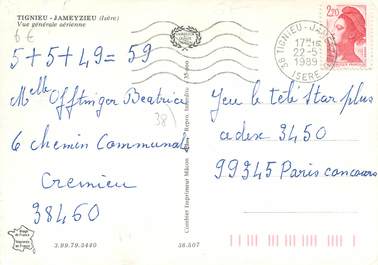 TIGNIEU - JAMEYZIEU (Isère)
Vue générale aérienne
6 €
5 + 5 + 49 = 59
Melle Offtinger Beatrice
6 chemin Communal
Cremieu
38460
38
Combier Imprimeur Mâcon
3.99.79.5440
38.507
38 TIGNIEU-JA
17H
22-5
1989
ISERE
2,20
Jeu le télé Star plus
cedex 3450
99345 Paris concours